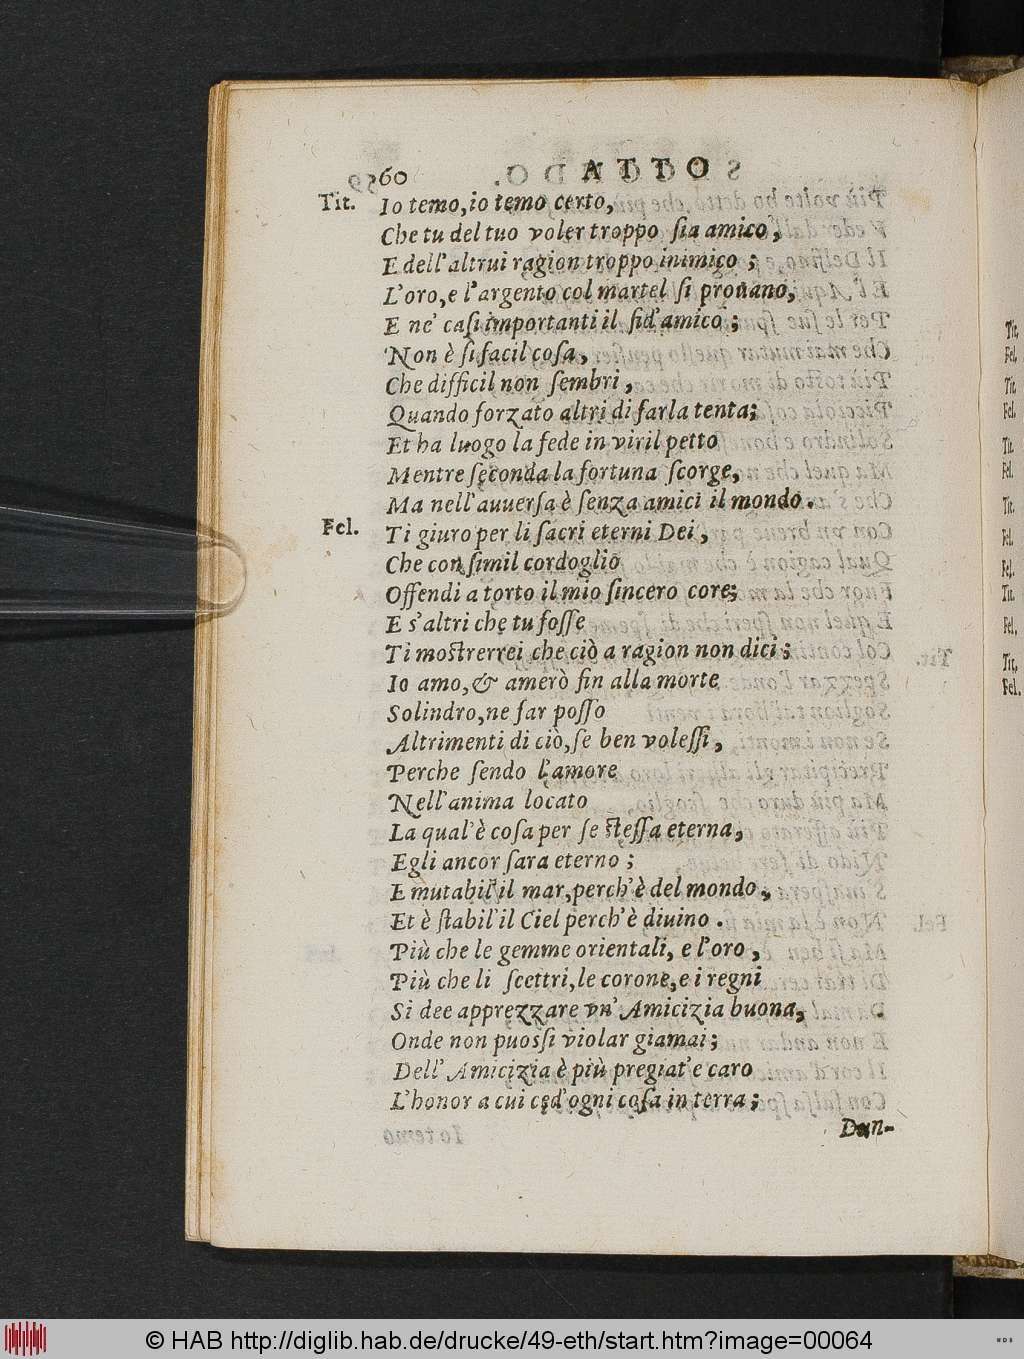 60 OTTA
Tit. Io temo, io temo certo,
Che tu del tuo voler troppo sia amico,
E dell'altrui ragion troppo inimico;
L'oro, e l'argento col martel si prouano,
E ne' casi importanti il fid'amico;
Non è sì facil cosa,
Che difficil non sembri,
Quando forzato altri di farla tenta;
Et ha luogo la fede in viril petto
Mentre seconda la fortuna scorge,
Ma nell'auuersa è senza amici il mondo.
Fel. Ti giuro per li sacri eterni Dei,
Che con simil cordoglio
Offendi a torto il mio sincero core;
E s'altri che tu fosse
Ti mostrerrei che ciò a ragion non dici;
Io amo, & amerò fin alla morte
Solindro, ne far posso
Altrimenti di ciò, se ben volessi,
Perche sendo l'amore
Nell'anima locato
La qual'è cosa per se stessa eterna,
Egli ancor sara eterno;
E mutabil'il mar, perch'è del mondo,
Et è stabil'il Ciel perch'è diuino.
Più che le gemme orientali, e l'oro,
Più che li scettri, le corone, e i regni
Si dee apprezzare vn'Amicizia buona,
Onde non puossi violar giamai;
Dell'Amicizia è più pregiat'e caro
L'honor a cui ced'ogni cosa in terra;
Dun-
Tit.
Fel.
Tit.
Fel.
Tit.
Fel.
Tit.
Fel.
Fel.
Tit.
Fel.
Tit.
Fel.
© HAB http://diglib.hab.de/drucke/49-eth/start.htm?image=00064